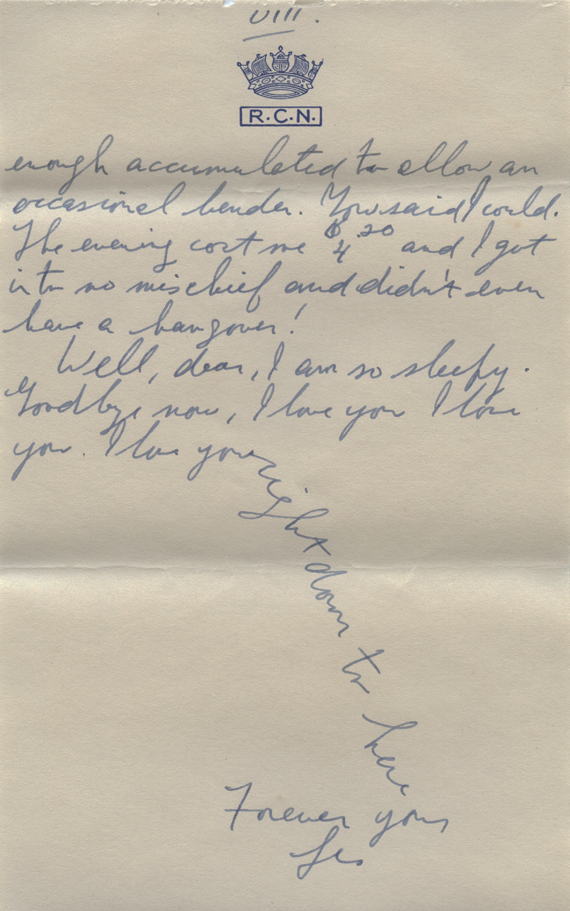 VIII.
R.C.N.
enough accumulated to allow an
occasional bender. You said I could.
The evening cost me $4.20 and I got
into no mischief and didn't even
have a hangover!
Well, dear, I am so sleepy.
Goodbye now, I love you I love
you. I love you right down to here
Forever yours
Les